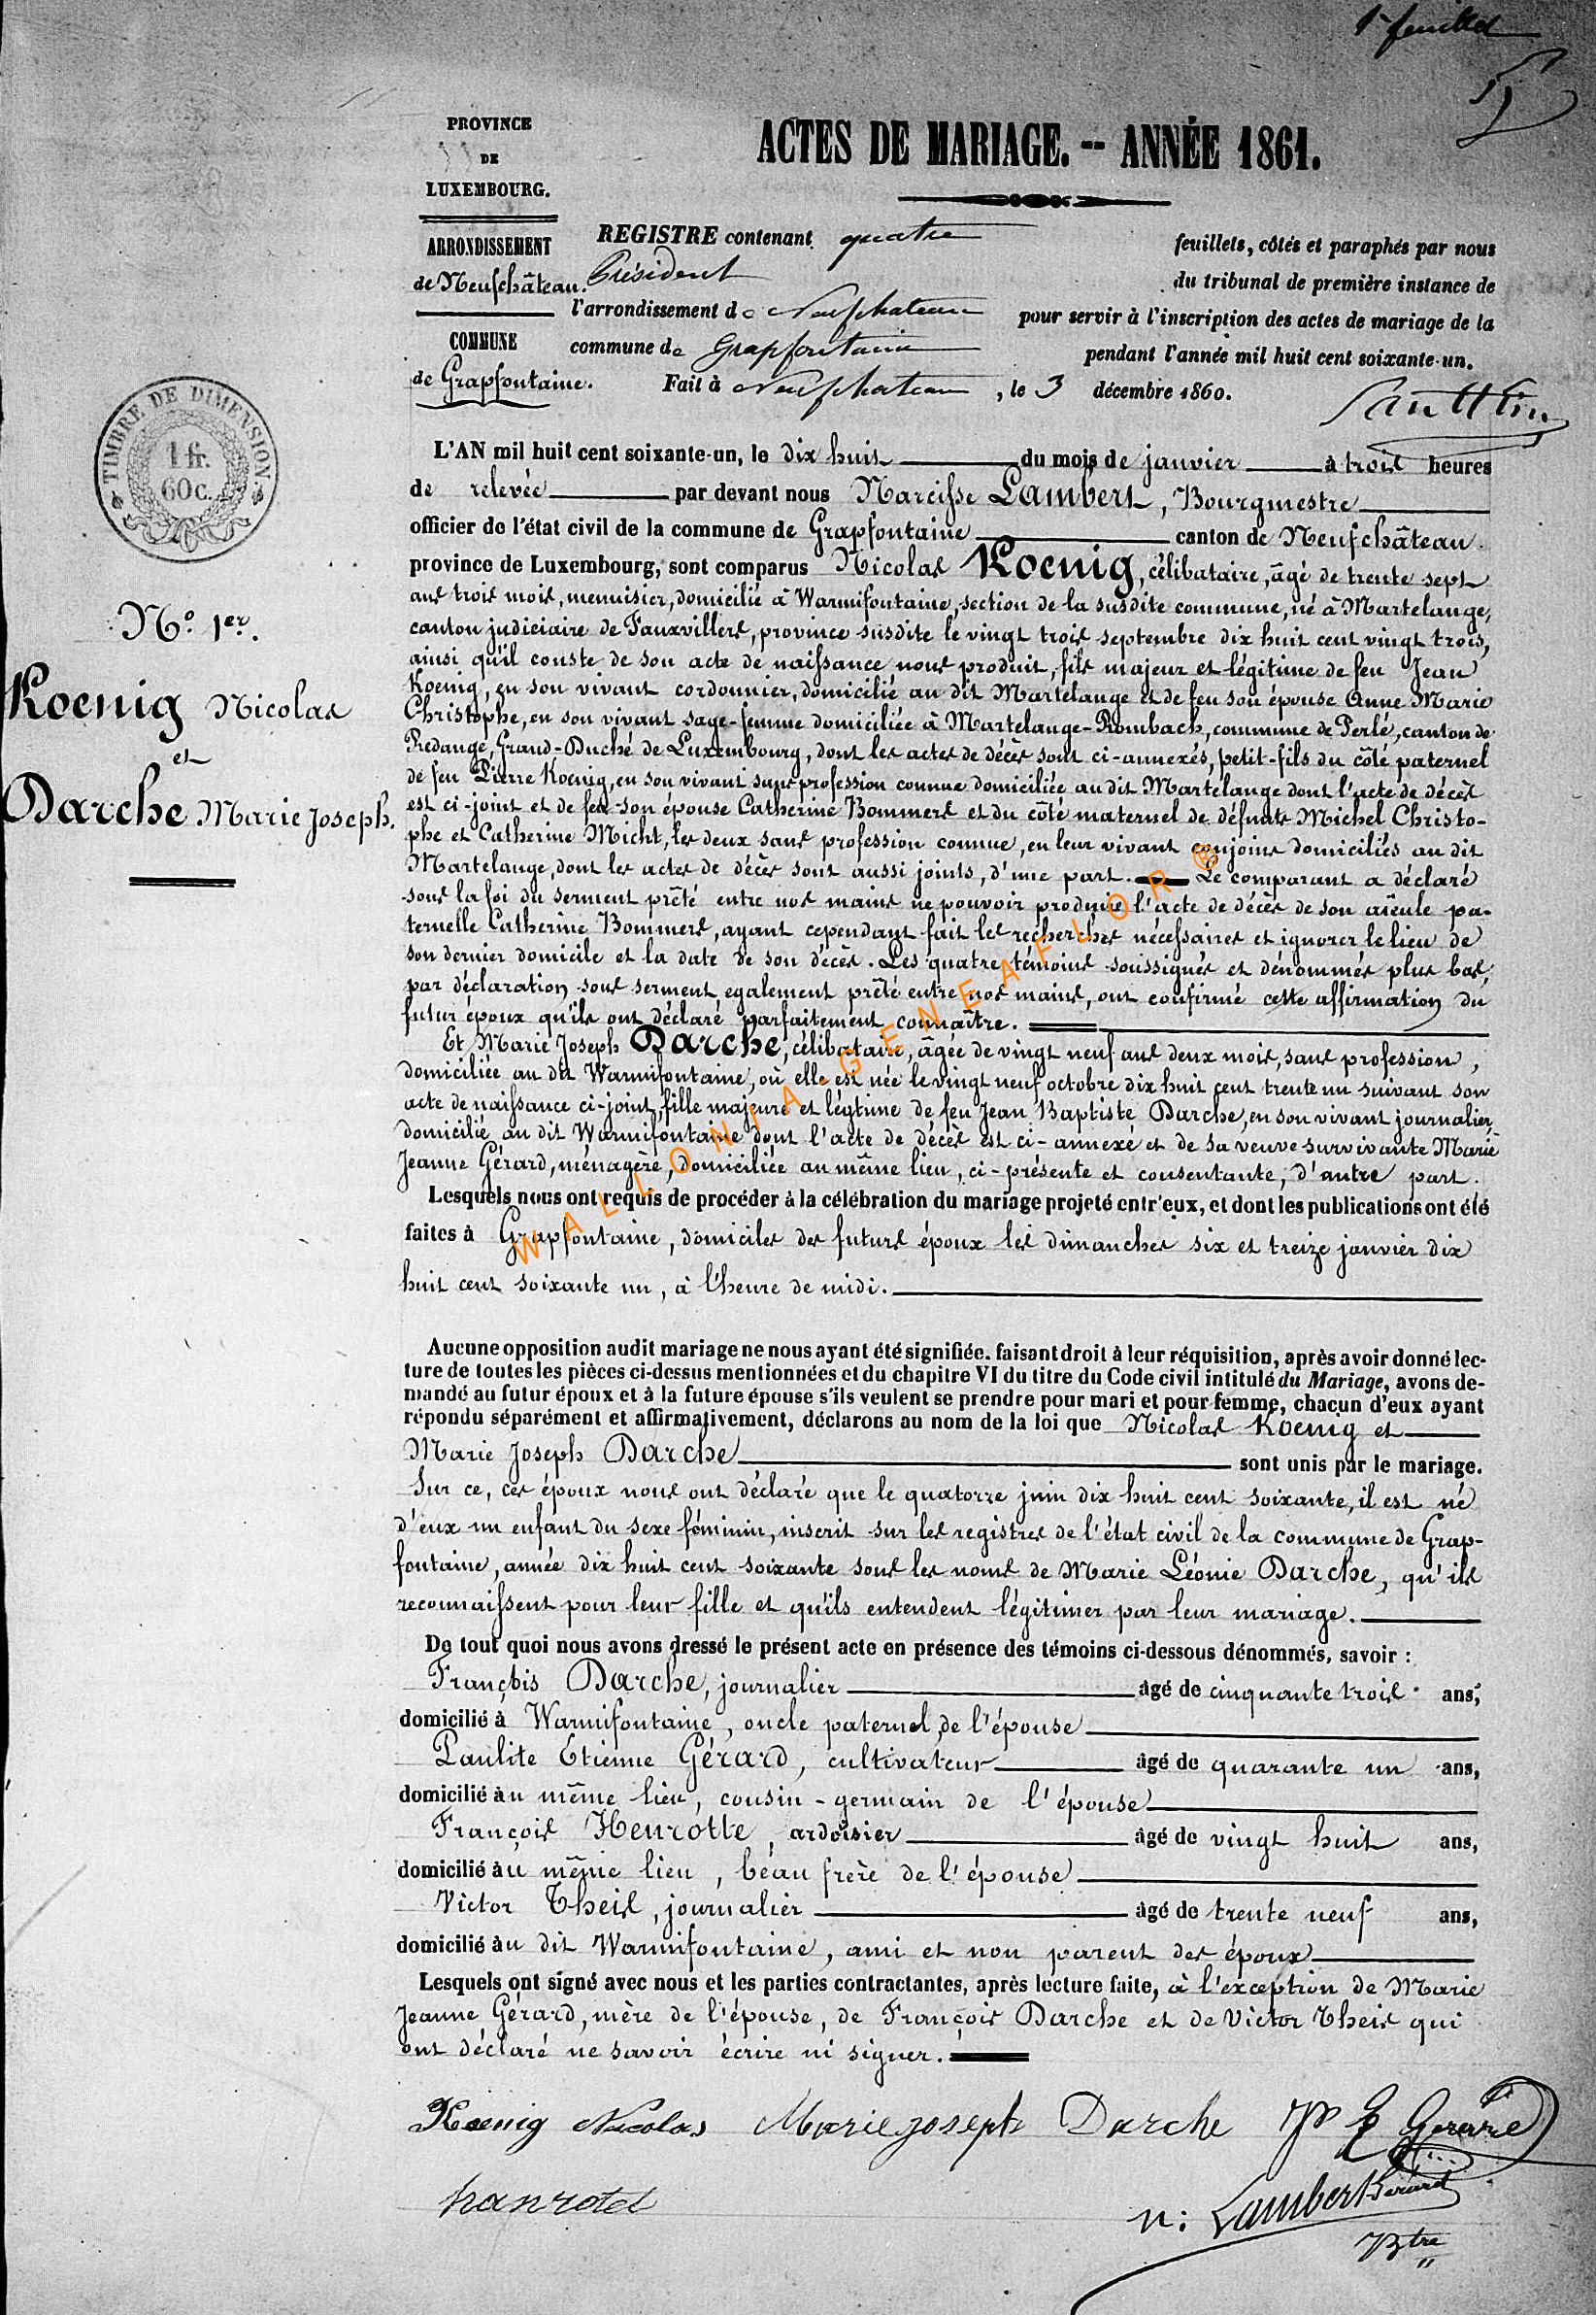 1er feuillet
PROVINCE
DE
LUXEMBOURG.
ARRONDISSEMENT
de Neufchâteau.
COMMUNE
de Grapfontaine.
ACTES DE MARIAGE. -- ANNÉE 1861.
REGISTRE contenant quatre feuillets, côtés et paraphés par nous
Président du tribunal de première instance de
l'arrondissement de Neufchateau pour servir à l'inscription des actes de mariage de la
commune de Grapfontaine pendant l'année mil huit cent soixante-un.
Fait à Neufchateau, le 3 décembre 1860.
TIMBRE DE DIMENSION.
1 fr.
60 c.
No. 1er.
Koenig Nicolas
et
Darche Marie Joseph.
L'AN mil huit cent soixante-un, le dix huit du mois de janvier à trois heures
de relevée par devant nous Narcisse Lambert, Bourgmestre
officier de l'état civil de la commune de Grapfontaine canton de Neufchâteau.
province de Luxembourg, sont comparus Nicolas Koenig, célibataire, âgé de trente sept
ans trois mois, menuisier, domicilié à Warmifontaine, section de la susdite commune, né à Martelange,
canton judiciaire de Fauxvillers, province susdite le vingt trois septembre dix huit cent vingt trois,
ainsi qu'il conste de son acte de naissance nous produit, fils majeur et légitime de feu Jean
Koenig, en son vivant cordonnier, domicilié au dit Martelange et de feu son épouse Anne Marie
Christophe, en son vivant sage-femme domiciliée à Martelange-Rombach, commune de Perlé, canton de
Redange, Grand-Duché de Luxembourg, dont les actes de décès sont ci-annexés, petit-fils du côté paternel
de feu Pierre Koenig, en son vivant sans profession connue domiciliée au dit Martelange dont l'acte de décès
est ci-joint et de feu son épouse Catherine Bommers et du côté maternel de défunts Michel Christo-
phe et Catherine Micht, les deux sans profession connue, en leur vivant conjoins domiciliés au dit
Martelange, dont les actes de décès sont aussi joints, d'une part. Le comparant a déclaré
sous la foi du serment prêté entre nos mains ne pouvoir produire l'acte de décès de son aïeule pa-
ternelle Catherine Bommers, ayant cependant fait les recherches nécessaires et ignorer le lieu de
son dernier domicile et la date de son décès. Les quatre témoins soussignés et dénommés plus bas,
par déclaration sous serment egalement prêté entre nos mains, ont confirmé cette affirmation du
futur époux qu'ils ont déclaré parfaitement connaître.
Et Marie Joseph Darche, célibataire, âgée de vingt neuf ans deux mois, sans profession,
domiciliée au dit Warmifontaine, où elle est née le vingt neuf octobre dix huit cent trente un suivant son
acte de naissance ci-joint, fille majeure et légtime de feu Jean Baptiste Darche, en son vivant journalier,
domicilié au dit Warmifontaine dont l'acte de décès est ci-annexé et de sa veuve survivante Marie
Jeanne Gérard, ménagère, domiciliée au même lieu, ci-présente et consentante, d'autre part.
Lesquels nous ont requis de procéder à la célébration du mariage projeté entr'eux, et dont les publications ont été
faites à Grapfontaine, domiciles des futurs époux les dimanches six et treize janvier dix
huit cent soixante un, à l'heure de midi.
Aucune opposition audit mariage ne nous ayant été signifiée, faisant droit à leur réquisition, après avoir donné lec-
ture de toutes les pièces ci-dessus mentionnées et du chapitre VI du titre du Code civil intitulé du Mariage, avons de-
mandé au futur époux et à la future épouse s'ils veulent se prendre pour mari et pour femme, chacun d'eux ayant
répondu séparément et affirmativement, déclarons au nom de la loi que Nicolas Koenig et
Marie Joseph Darche sont unis par le mariage.
Sur ce, ces époux nous ont déclaré que le quatorze juin dix huit cent soixante, il est né
d'eux un enfant du sexe féminin, inscrit sur les registres de l'état civil de la commune de Grap-
fontaine, année dix huit cent soixante sous les noms de Marie Léonie Darche, qu'ils
reconnaissent pour leur fille et qu'ils entendent légitimer par leur mariage.
De tout quoi nous avons dressé le présent acte en présence des témoins ci-dessous dénommés, savoir :
François Darche, journalier âgé de cinquante trois ans,
domicilié à Warmifontaine, oncle paternel de l'épouse
Paulite Etienne Gérard, cultivateur âgé de quarante un ans,
domicilié au même lieu, cousin-germain de l'épouse
François Henrotte, ardoisier âgé de vingt huit ans,
domicilié au même lieu, beau frère de l'épouse
Victor Theis, journalier âgé de trente neuf ans,
domicilié au dit Warmifontaine, ami et non parent des époux
Lesquels ont signé avec nous et les parties contractantes, après lecture faite, à l'exception de Marie
Jeanne Gérard, mère de l'épouse, de François Darche et de Victor Theis qui
ont déclaré ne savoir écrire ni signer.
Koenig Nicolas Marie joseph Darche P E Gerard
hanrotel
n: Lambert Gerard
Btre
WALLONIA-GENEAFLOR®